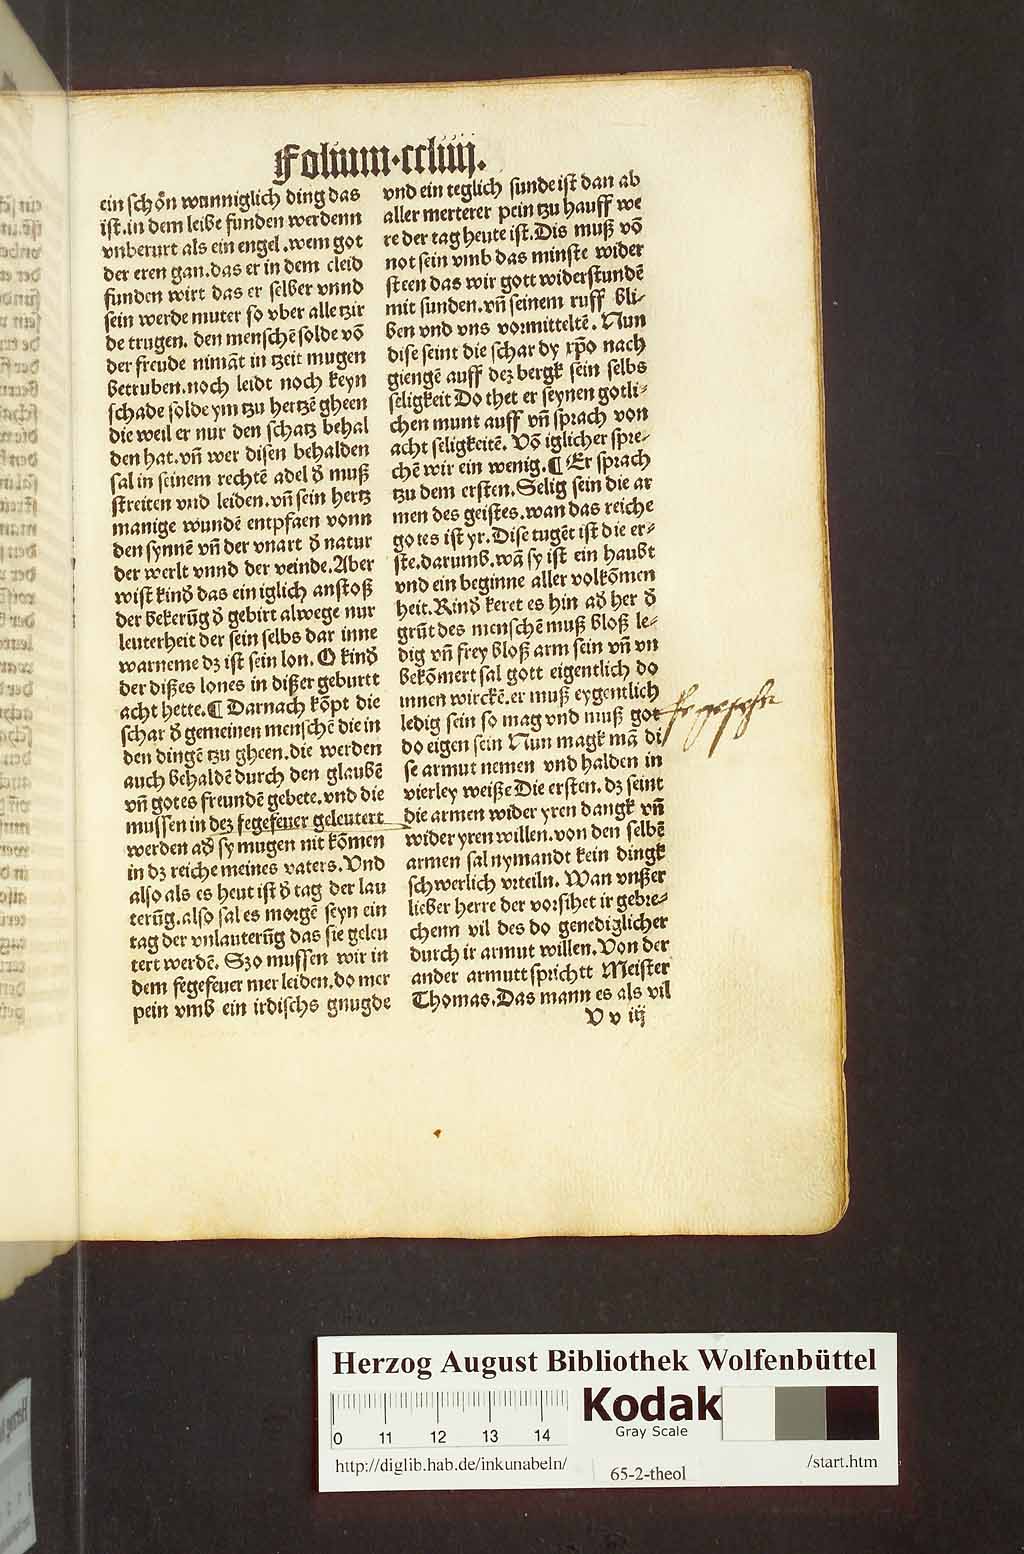 Folium·ccliiij.
ein schoͤn wunniglich ding das
ist.in dem leibe funden werdenn
vnberurt als ein engel.wem got
der eren gan.das er in dem cleid
funden wirt das er selber vnnd
sein werde muter so vber alle tzir
de trugen. den menschē solde vō
der freude nimāt in tzeit mugen
betruben.noch leidt noch keyn
schade solde ym tzu hertzē gheen
die weil er nur den schatz behal
den hat.vn̄ wer disen behalden
sal in seinem rechtē adel d̕ muß
streiten vnd leiden.vn̄ sein hertz
manige wundē entpfaen vonn
den synnē vn̄ der vnart d̕ natur
der werlt vnnd der veinde.Aber
wist kind̕ das ein iglich anstoß
der bekerūg d̕ gebirt alwege nur
leuterheit der sein selbs dar inne
warneme dz ist sein lon. O kind̕
der dißes lones in dißer geburtt
acht hette.¶ Darnach kōpt die
schar d̕ gemeinen menschē die in
den dingē tzu gheen.die werden
auch behaldē durch den glaubē
vn̄ gotes freundē gebete.vnd die
mussen in dez fegefeuer geleutert
werden ad̕ sy mugen nit kōmen
in dz reiche meines vaters. Vnd
also als es heut ist d̕ tag der lau
terūg.also sal es morgē seyn ein
tag der vnlauterūg das sie geleu
tert werdē. Szo mussen wir in
dem fegefeuer mer leiden.do mer
pein vmb ein irdischs gnugde
vnd ein teglich sunde ist dan ab
aller merterer pein tzu hauff we
re der tag heute ist.Dis muß vō
not sein vmb das minste wider
steen das wir gott widerstundē
mit sunden.vn̄ seinem ruff bli⸗
ben vnd vns vormitteltē. Nun
dise seint die schar dy xp̄o nach
giengē auff dez bergk sein selbs
seligkeit Do thet er seynen gotli⸗
chen munt auff vn̄ sprach von
acht seligkeitē. Vō iglicher spre⸗
chē wir ein wenig.¶ Er sprach
tzu dem ersten.Selig sein die ar
men des geistes.wan das reiche
gotes ist yr.Dise tugēt ist die er⸗
ste.darumb.wā sy ist ein haubt
vnd ein beginne aller volkōmen
heit.Kind̕ keret es hin ad̕ her d̕
grūt des menschē muß bloß le⸗
dig vn̄ frey bloß arm sein vn̄ vn
bekōmert sal gott eigentlich do
innen wirckē.er muß eygentlich
ledig sein so mag vnd muß got
do eigen sein Nun magk mā di
se armut nemen vnd halden in
vierley weiße Die ersten. dz seint
die armen wider yren dangk vn̄
wider yren willen.von den selbē
armen sal nymandt kein dingk
schwerlich vrteiln. Wan vnßer
lieber herre der vorsihet ir gebre⸗
chenn vil des do genediglicher
durch ir armut willen. Von der
ander armutt sprichtt Meister
Thomas.Das mann es als vil
V v iij
Herzog August Bibliothek Wolfenbüttel
0 11 12 13 14
Kodak
Gray Scale
http://diglib.hab.de/inkunabeln/
65-2-theol
/start.htm